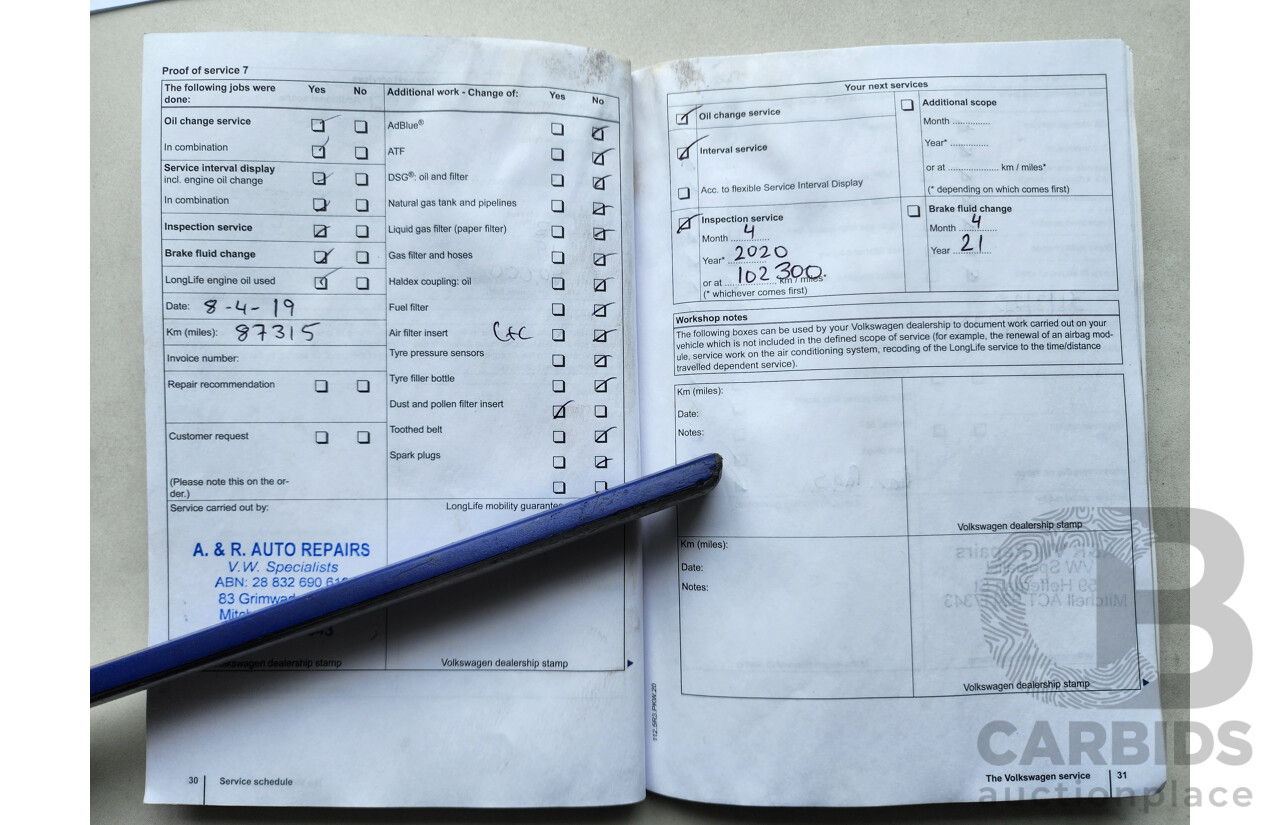 Proof of service 7
The following jobs were done: Yes No
Additional work - Change of: Yes No
Oil change service
In combination
Service interval display
incl. engine oil change
In combination
Inspection service
Brake fluid change
LongLife engine oil used
Date: 8-4-19
Km (miles): 87315
Invoice number:
Repair recommendation
Customer request
(Please note this on the or-
der.)
Service carried out by:
A. & R. AUTO REPAIRS
V.W. Specialists
ABN: 28 832 690
83
Volkswagen dealership stamp
AdBlue®
ATF
DSG®: oil and filter
Natural gas tank and pipelines
Liquid gas filter (paper filter)
Gas filter and hoses
Haldex coupling: oil
Fuel filter
Air filter insert
Tyre pressure sensors
Tyre filler bottle
Dust and pollen filter insert
Toothed belt
Spark plugs
LongLife mobility
Volkswagen dealership stamp
30 Service schedule
Your next services
Oil change service
Interval service
Acc. to flexible Service Interval Display
Inspection service
Month 4
Year* 2020
or at 102 300 km / miles*
(* whichever comes first)
Additional scope
Month ..............
Year* ..............
or at .................... km / miles*
(* depending on which comes first)
Brake fluid change
Month 4
Year 21
Workshop notes
The following boxes can be used by your Volkswagen dealership to document work carried out on your
vehicle which is not included in the defined scope of service (for example, the renewal of an airbag mod-
ule, service work on the air conditioning system, recoding of the LongLife service to the time/distance
travelled dependent service).
Km (miles):
Date:
Notes:
Volkswagen dealership stamp
Km (miles):
Date:
Notes:
Volkswagen dealership stamp
The Volkswagen service 31
CARBIDS
auctionplace